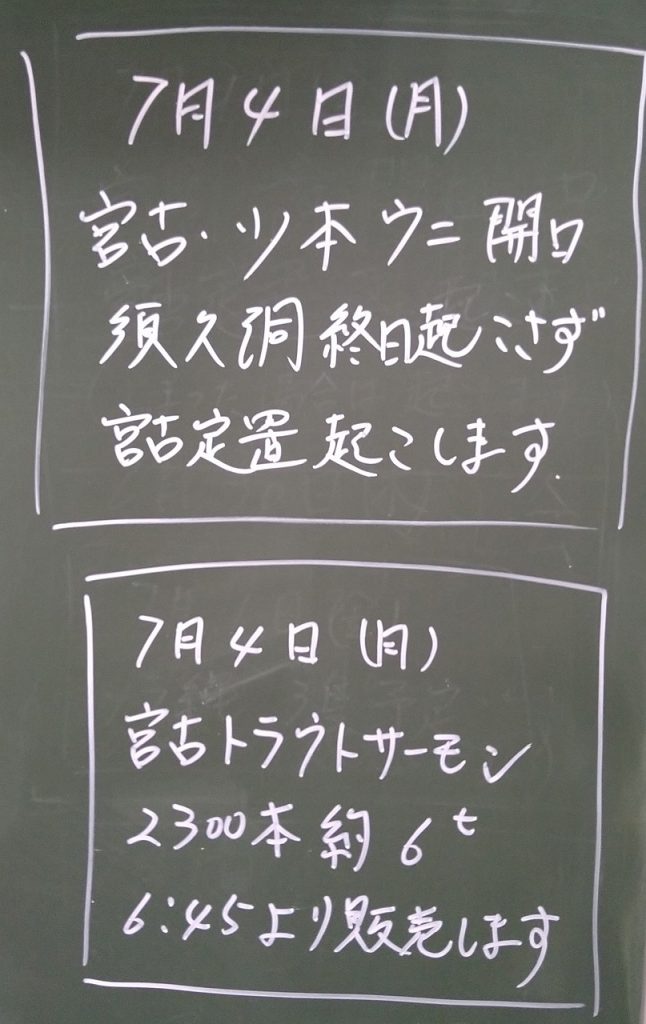 7月4日(月)
宮古・ツノ本ウニ開口
須久洞終日起こさず
宮古定置起こします.
7月4日(月)
宮古トラウトサーモン
2300本約6t
6:45より販売します